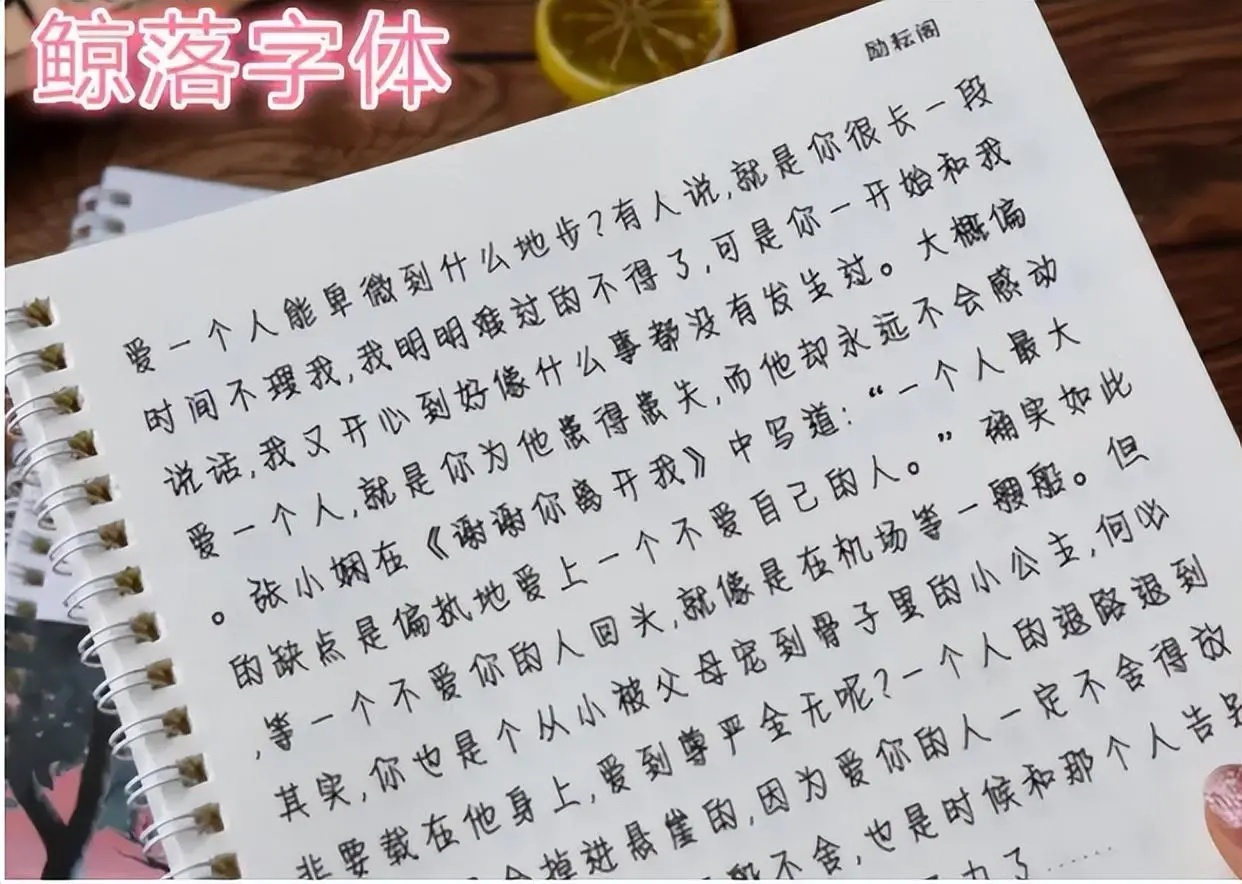 鲸落字体
励耘阁
爱一个人能卑微到什么地步?有人说,就是你很长一段
时间不理我,我明明难过的不得了,可是你一开始和我
说话,我又开心到好像什么事都没有发生过。大概偏
爱一个人,就是你为他患得患失,而他却永远不会感动
。张小娴在《谢谢你离开我》中写道:“一个人最大
的缺点是偏执地爱上一个不爱自己的人。”确实如此
,等一个不爱你的人回头,就像是在机场等一艘船。但
其实,你也是个从小被父母宠到骨子里的小公主,何必
非要栽在他身上,爱到尊严全无呢?一个人的退路退到
会掉进悬崖的,因为爱你的人一定不舍得放
不舍,也是时候和那个人告别
力了……